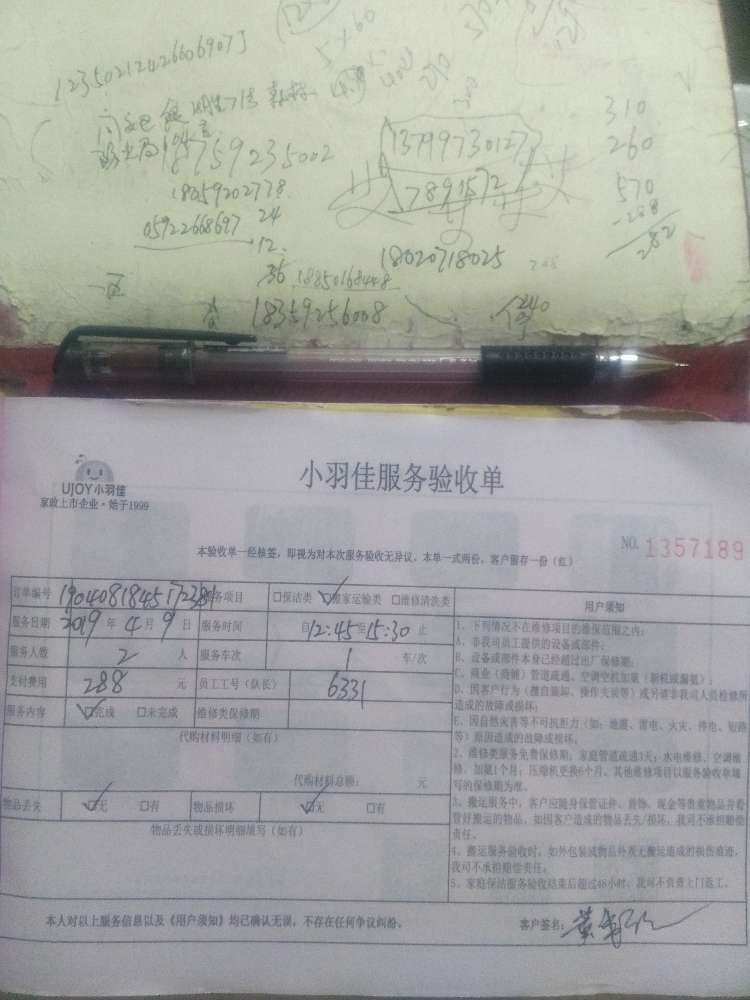 5×60
12350212426606907J
310
260
13799730127
18759235002
570
7891572
-288
18059202778
282
05922668697
24
12
18020718025
36
18850168448
240
18359256008
小羽佳服务验收单
UJOY小羽佳
家政上市企业·始于1999
本验收单一经核签，即视为对本次服务验收无异议。本单一式两份，客户留存一份（红）
NO. 1357189
订单编号 服务项目 □保洁类 ☑搬家运输类 □维修清洗类
服务日期 2019 年 4 月 9 日 服务时间 自 12:45 至 15:30 止
服务人数 2 人 服务车次 1 车/次
支付费用 288 元 员工工号（队长） 6331
服务内容 ☑完成 □未完成 维修类保修期
代购材料明细（如有）
代购材料总额： 元
物品丢失 ☑无 □有 物品损坏 ☑无 □有
物品丢失或损坏明细填写（如有）
用户须知
1、下列情况不在维修项目的维保范围之内：
A、非我司员工提供的设备或部件；
B、设备或部件本身已经超过出厂保修期；
C、商业（商铺）管道疏通、空调空机加氨（新机或漏氨）；
D、因客户行为（擅自装卸、操作失误等）或另请非我司人员检修所
造成的故障或损坏；
E、因自然灾害等不可抗拒力（如：地震、雷电、火灾、停电、短路
等）原因造成的故障或损坏。
2、维修类服务免费保修期：家庭管道疏通3天；水电维修、空调维
修、加氨1个月；压缩机更换6个月。其他维修项目以服务验收单填
写的保修期为准。
3、搬运服务中，客户应随身保管证件、首饰、现金等贵重物品并看
管好搬运的物品，如因客户造成的物品丢失/损坏，我司不承担赔偿
责任。
4、搬运服务验收时，如外包装或物品外观无搬运造成的损伤痕迹，
我司不承担赔偿责任。
5、家庭保洁服务验收结束后超过48小时，我司不负责上门返工。
本人对以上服务信息以及《用户须知》均已确认无误，不存在任何争议纠纷。
客户签名：